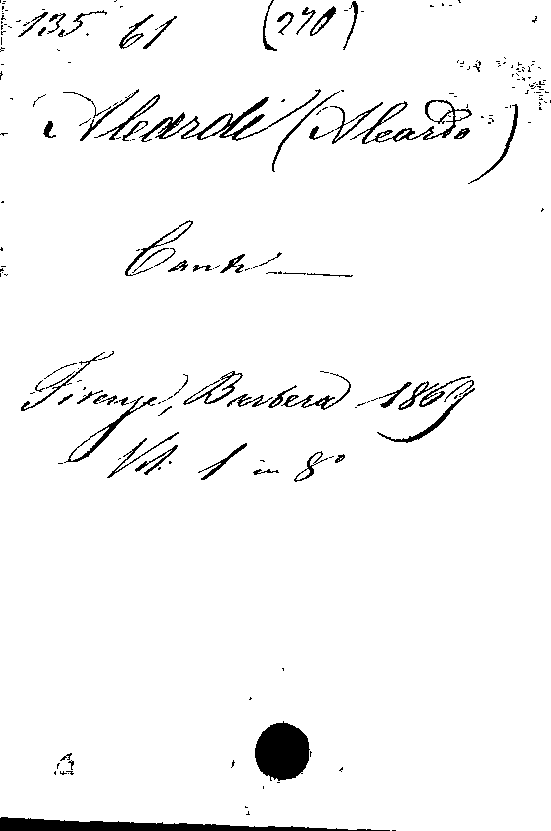 135. 61 (270)
Aleardi (Aleardo)
Canti
Firenze, Barbera 1869
Vol. 1 in 8º